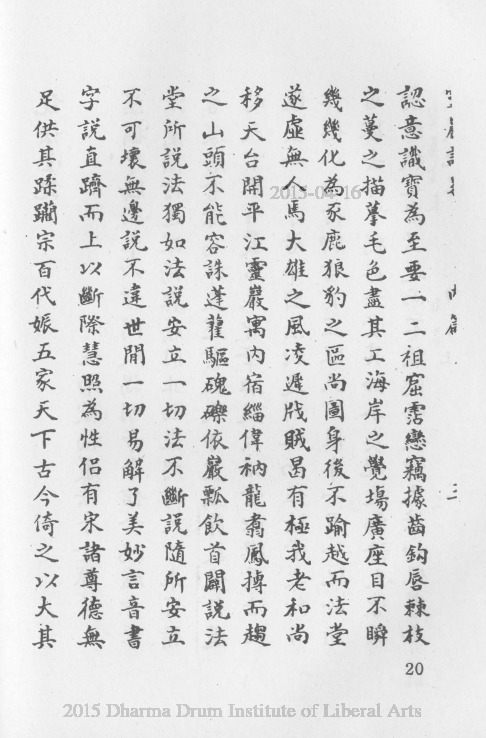 認意識寶為至要一二祖窟霑戀竊據齒鈎唇棘枝
之蔓之描摹毛色盡其工海岸之覺場廣座目不瞬
幾幾化為豕鹿狼豹之區尚圖身後不踰越而法堂
遂虛無人焉大雄之風凌遲戕賊曷有極我老和尚
移天台開平江靈巖寓內宿緇偉衲龍翥鳳摶而趨
之山頭不能容誅蓬藋驅磈礫依巖瓢飲首闢說法
堂所說法獨如法說安立一切法不斷說隨所安立
不可壞無邊說不違世間一切易解了美妙言音書
字說直躋而上以斷際慧照為性侶有宋諸尊德無
足供其蹂躪宗百代娠五家天下古今倚之以大其
内篇
三
20
2015-04-16
2015 Dharma Drum Institute of Liberal Arts